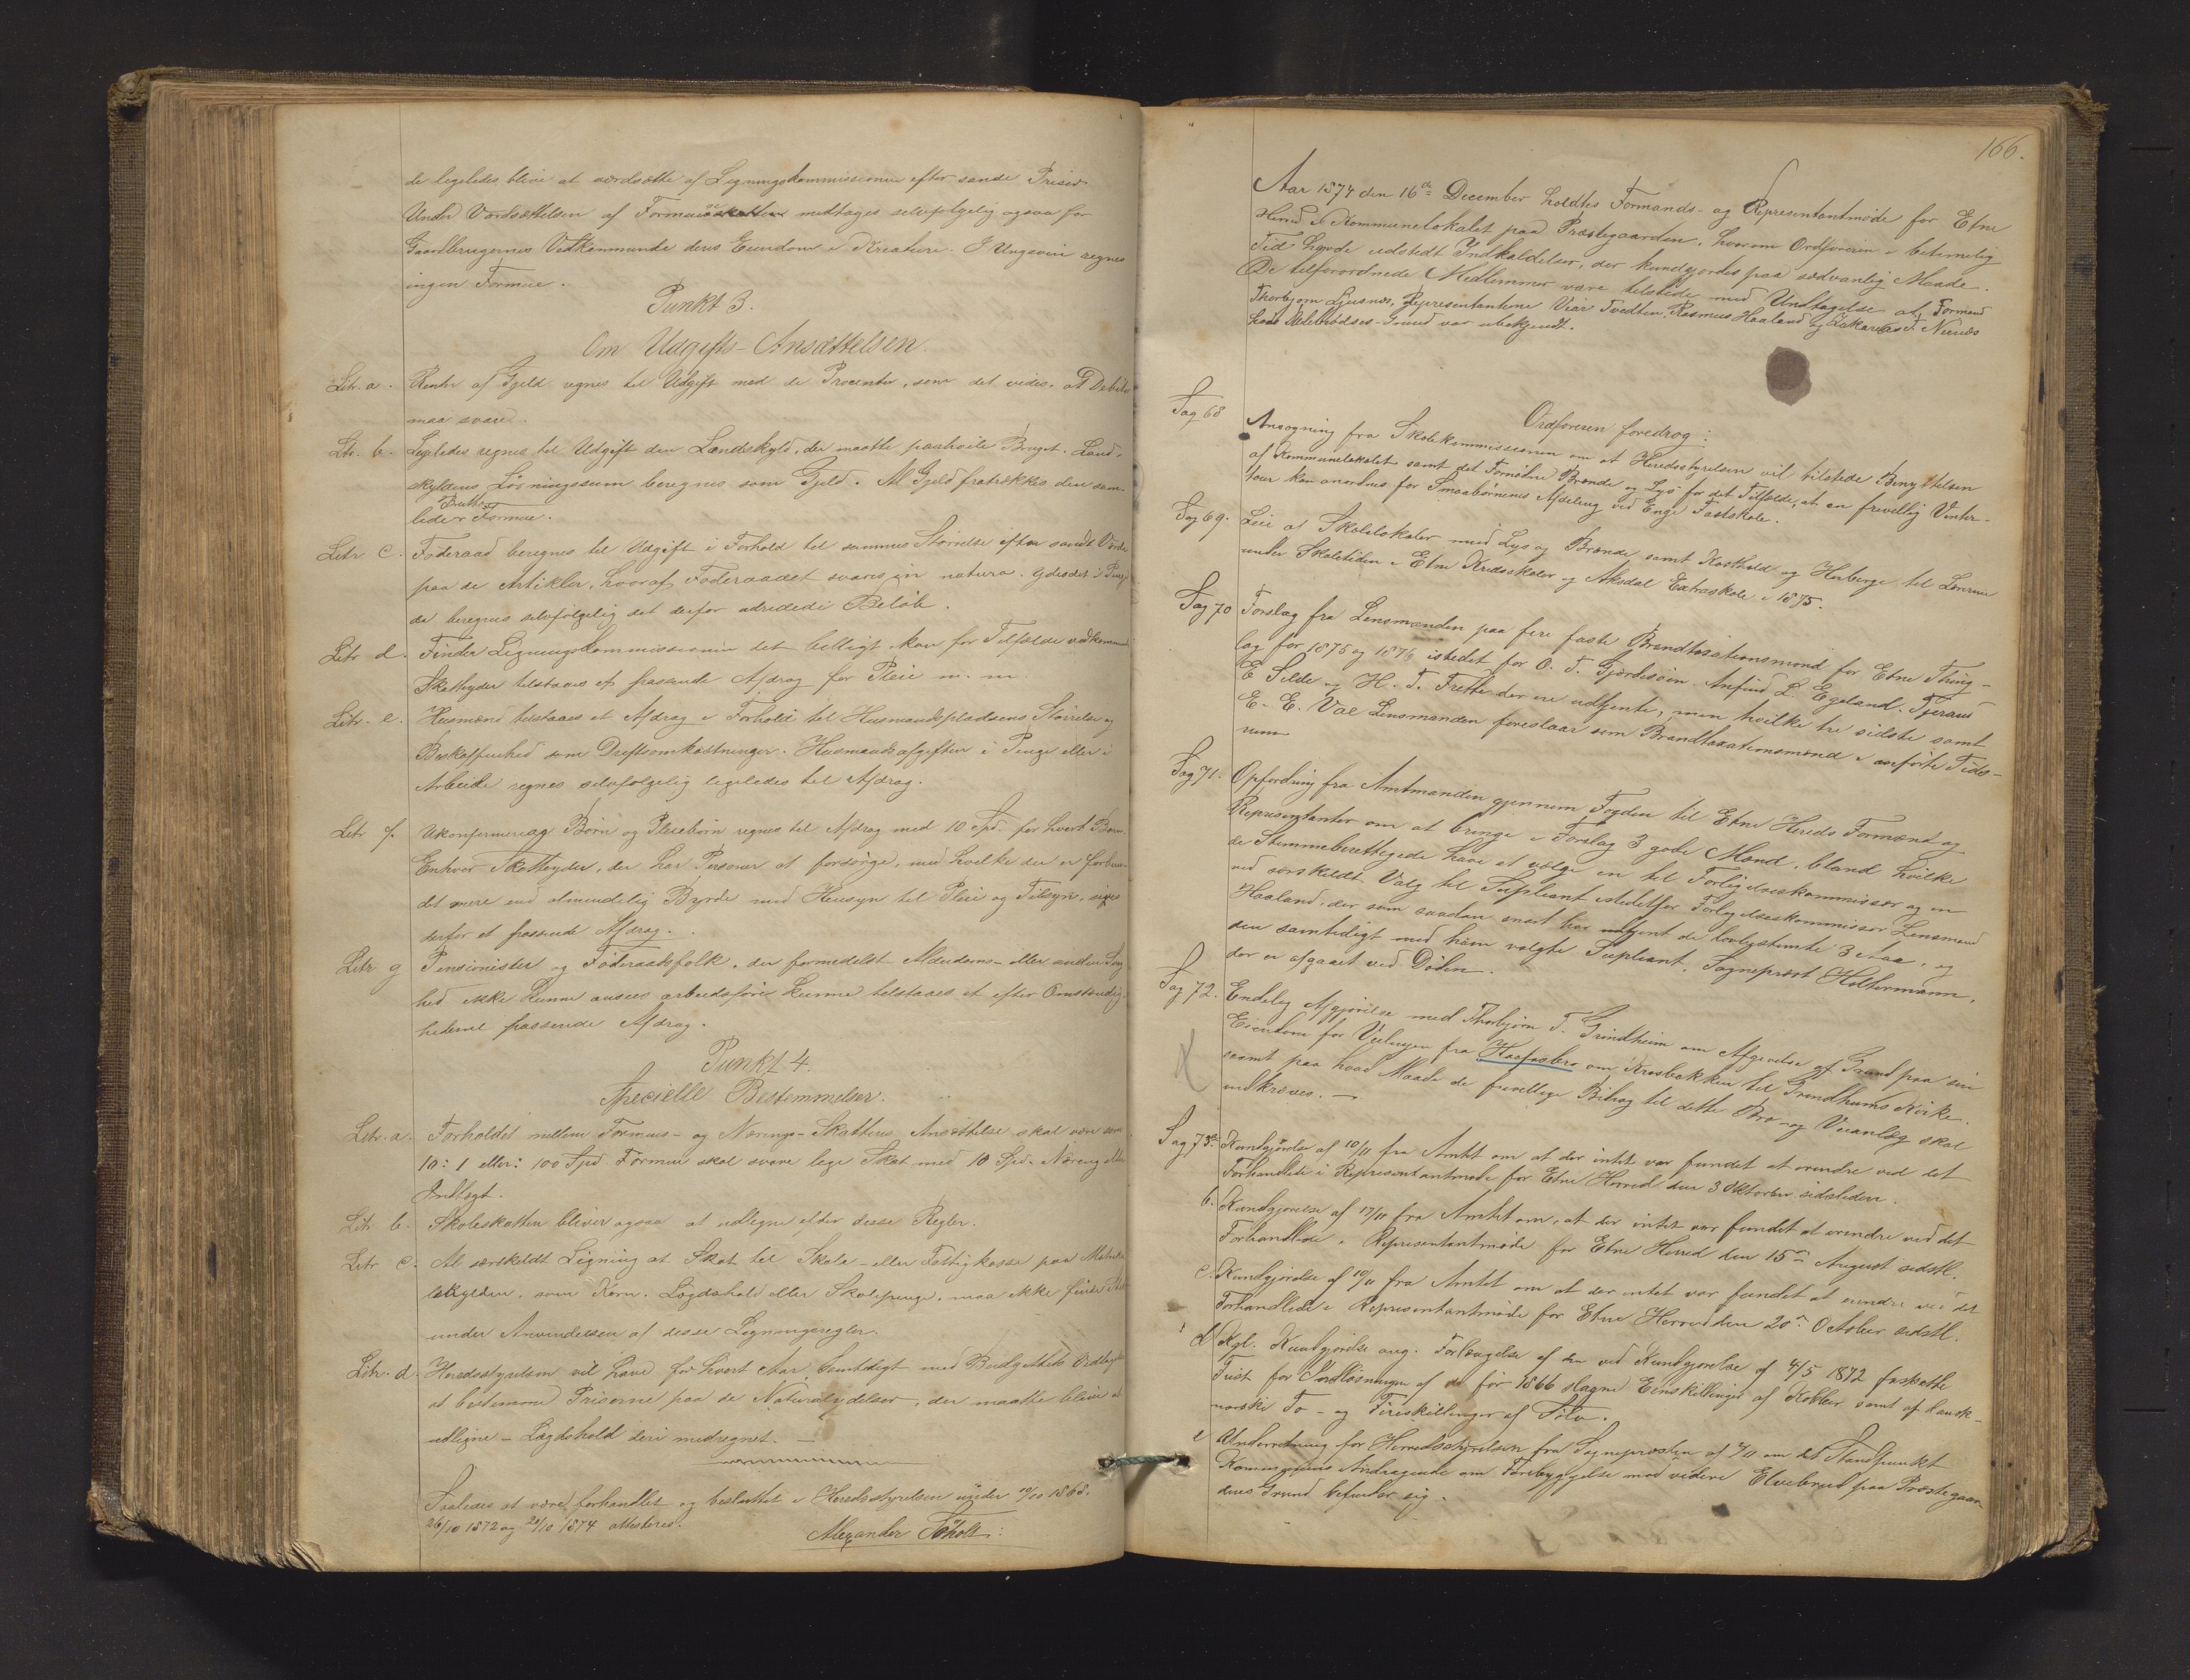 de ligeledes blive at værdsætte af Ligningskommissionen efter sande Priser.
Under Værdsættelsen af Formuen medtages selvfølgelig ogsaa for
Gaardbrugernes Vedkommende deres Eiendom i Kreature. I Ungsvin regnes
ingen Formue.
Punkt 3.
Om Udgifts-Ansættelsen.
Litr. a. Renter af Gjeld regnes til Udgift med de Procenter, som det vides, at Debitor
maa svare.
Litr. b. Ligeledes regnes til Udgift den Landskyld, der maatte paahvile Bruget. Land-
skyldens Løsningssum beregnes som Gjeld. Al Gjeld fratrækkes den sam-
lede Brutto Formue.
Litr c. Føderaad beregnes til Udgift i Forhold til sammes Størrelse efter sandt Værd
paa de Artikler, hvoraf Føderaadet svares in natura. Ydes det i Penge
da beregnes selvfølgelig det derfor udredede Beløb.
Litr d. Finder Ligningskommissionen det billigt kan for Tilfælde vedkommende
Skatteyder tilstaaes et passende Afdrag for Pleie m. m.
Litr. e. Husmænd tilstaaes et Afdrag i Forhold til Husmandspladsens Størrelse og
Beskaffenhed som Driftsomkostninger. Husmandsafgiften i Penge eller i
Arbeide regnes selvfølgelig ligeledes til Afdrag.
Litr f. Ukonfirmerede Børn og Pleiebørn regnes til Afdrag med 10 Spd. for hvert Barn.
Enhver Skatteyder, der har Personer at forsørge, med hvilke der er forbun-
det mere end almindelig Byrde med Hensyn til Pleie og Tilsyn, gives
derfor et passende Afdrag.
Litr g Pensionister og Føderaadsfolk, der formedelst Alderdoms- eller anden Svag
hed ikke kunne ansees arbeidsføre kunne tilstaaes et efter Omstændig-
hederne passende Afdrag.
Punkt 4.
Specielle Bestemmelser.
Litr. a. Forholdet mellem Formues- og Nærings-Skattens Ansættelse skal være som
10:1 eller: 100 Spd Formue skal svare lige Skat med 10 Spd. Næring eller
Indtægt.
Litr b. Skoleskatten bliver ogsaa at udligne efter disse Regler.
Litr c. Al særskildt Ligning af Skat til Skole- eller Fattigkasse paa Matrikul
skylden, som Korn, Lægdehold eller Skolepenge, maa ikke finde Sted
under Anvendelsen af disse Ligningsregler.
Litr. d. Heredsstyrelsen vil have for hvert Aar samtidigt med Budgettets Vedtagelse
at bestemme Priserne paa de Naturalydelser, der maatte blive at
udligne - Lægdehold deri medregnet. —
Saaledes at være forhandlet og besluttet i Heredsstyrelsen under 10/10 1868.
26/10 1872 og 20/10 1874 attesteres.
Alexander Tøholt:
166.
Aar 1874 den 16de December holdtes Formands- og Representantmøde for Etne
Hered i Kommunelokalet paa Præstegaarden, hvorom Ordføreren i betimelig
Tid havde udstedt Indkaldelser, der kundgjordes paa sædvanlig Maade.
De tilforordnede Medlemmer være tilstede med Undtagelse af Formand
Thorbjørn Ljusnæs, Representanterne Viar Tvedten, Rasmus Haaland og Zakarias T. Nernæs
hvis Udeblivelses-Grund var ubekjendt.
Ordføreren foredrog:
Sag 68 Ansøgning fra Skolekommissionen om at Heredsstyrelsen vil tilstede Benyttelsen
af Kommunelokalet samt det Fornødne Brænde og Lys for det Tilfælde, at en frivillig Vinter-
kan anordnes for Smaabørnenes Afdeling ved Enge Fastskole.
Sag 69. Leie af Skolelokaler med Lys og Brænde samt Kosthold og Herberge til Lærerne
under Skoletiden i Etne Kredsskoler og Aksdal Extraskole i 1875.
Sag 70 Forslag fra Lensmanden paa fire faste Brandtaxationsmænd for Etne Thing-
lag for 1875 og 1876 istedet for O. T. Gjerdesøin Anfind L. Egeland, Tjeran
E Silde og H. T. Frette der ere udtjente, men hvilke tre sidste samt
E. E. Vae Lensmanden foreslaar som Brandtaxationsmænd i anførte Tids-
rum
Sag 71. Opfordring fra Amtmanden gjennem Fogden til Etne Hereds Formænd og
Representanter om at bringe i Forslag 3 gode Mænd, bland hvilke
de Stemmeberettigede have at vælge en til Forligelseskommissær og en
ved særskildt Valg til Supleant istedetfor Forligelseskommissær Lensmand
Haaland, der som saadan snart har udtjent de lovbestemte 3 Aar, og
den samtidigt med ham valgte Supleant, Sogneprest Holtermann,
der er afgaaet ved Døden.
Sag 72. Endelig Afgjørelse med Thorbjørn T. Grindheim om Afgivelse af Grund paa sin
Eiendom for Veilinjen fra Haafosbro om Krosbakken til Grindheims Kirke
samt paa hvad Maade de frivillige Bidrag til dette Bro- og Veianlæg skal
indkræves. —
Sag 73a. Kundgjørelse af 10/11 fra Amtet om at der intet var fundet at erindre ved det
Forhandlede i Representantmøde for Etne Herred den 3 Oktober sidstleden.
b. Kundgjørelse af 17/11 fra Amtet om, at der intet var fundet at erindre ved det
Forhandlede i Representantmøde for Etne Herred den 15de August sidstl.
c. Kundgjørelse af 10/11 fra Amtet om at der intet var fundet at erindre ved det
Forhandlede i Representantmøde for Etne Herred den 20de October sidstl.
d Kgl. Kundgjørelse ang. Forlængelse af den ved Kundgjørelse af 4/5 1872 fastsatte
Frist for Indløsningen af de før 1866 slagne Eenskillinger af Kobber samt af dansk-
norske To- og Fireskillinger af Sølv.
e Underretning for Herredsstyrelsen fra Sognepresten af /11 om det Standpunkt
Kommunens Andragende om Forebyggelse mod videre Elvebrud paa Præstegaar-
dens Grund befinder sig.